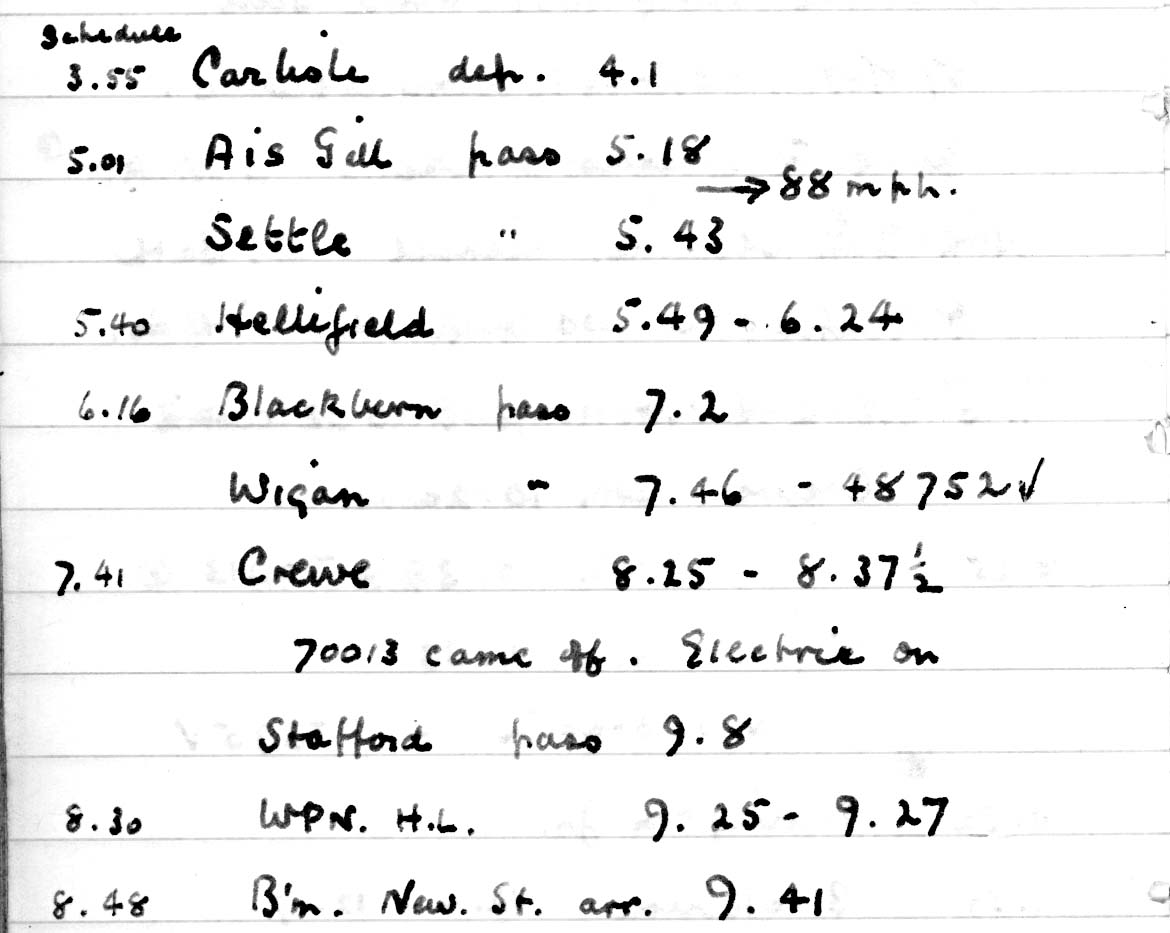 Schedule
3.55 Carlisle dep. 4.1
5.01 Ais Gill pass 5.18
→ 88 mph.
Settle " 5.43
5.40 Hellifield 5.49 - 6.24
6.16 Blackburn pass 7.2
Wigan " 7.46 - 48752 ✓
7.41 Crewe 8.25 - 8.37½
70013 came off. Electric on
Stafford pass 9.8
8.30 WPN. H.L. 9.25 - 9.27
8.48 B'm. New. St. arr. 9.41